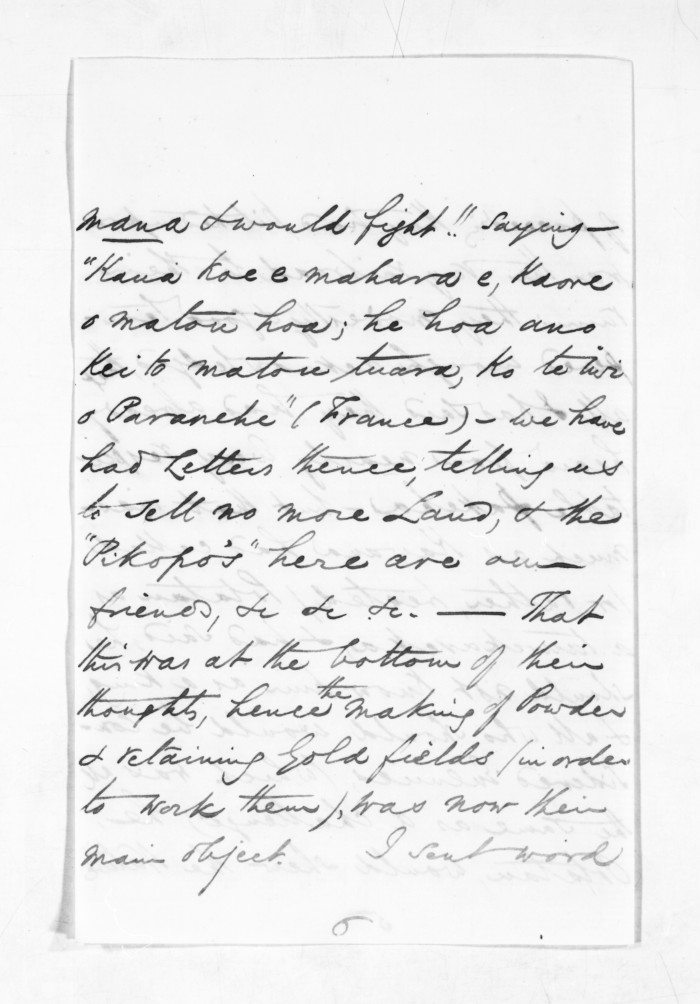 mana & would fight!! saying—
"Kaua koe e mahara e, Kaore
o matou hoa; he hoa ano
Kei to matou tuara, Ko te Iwi
o Paranehe" (France) – we have
had Letters thence, telling us
to sell no more Land, & the
"Pikopo's" here are our
friends, &c &c &c. — That
this was at the bottom of their
thoughts, hence the making of Powder
& retaining Gold fields (in order
to work them), was now their
main object. I sent word
6